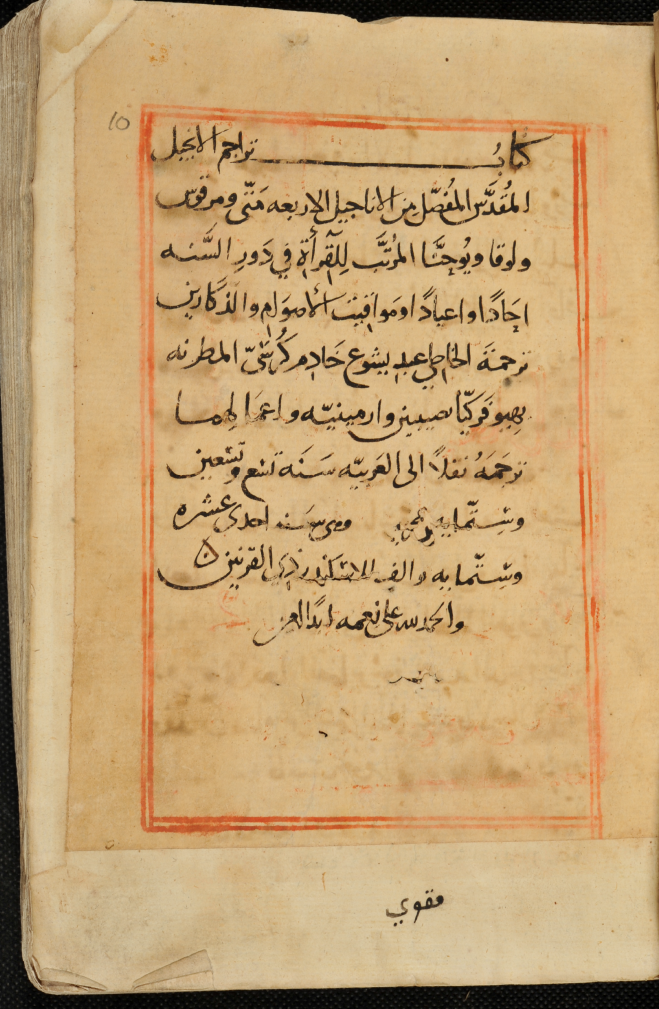 10
كتابُ تراجم الانجيل
المُقدَّس المُفصّل مِن الاناجيل الاربعه مَتّى ومرقوس
ولوقا ويُوحنَّا المُرتَّب لِلقرأَةِ في دَورِ السَّنه
احَادًا واعيادًا ومَواقيت الأصوَامِ والذَّكَارين
ترجمَة الخاطي عبد يشوع خَادِم كُرسّيّ المطرنه
بصوفَركيّا نصيبين وارمينيّه واعمَالهما
ترجَمَهُ نقلاً الى العَربيّه سَنَة تسع وتسعين
وستّمايه وهى سنه احدى عشره
وستّمايه والف للاسكندر ذي القرنين
والحمد لله على نعمه ابدًا
مقوي